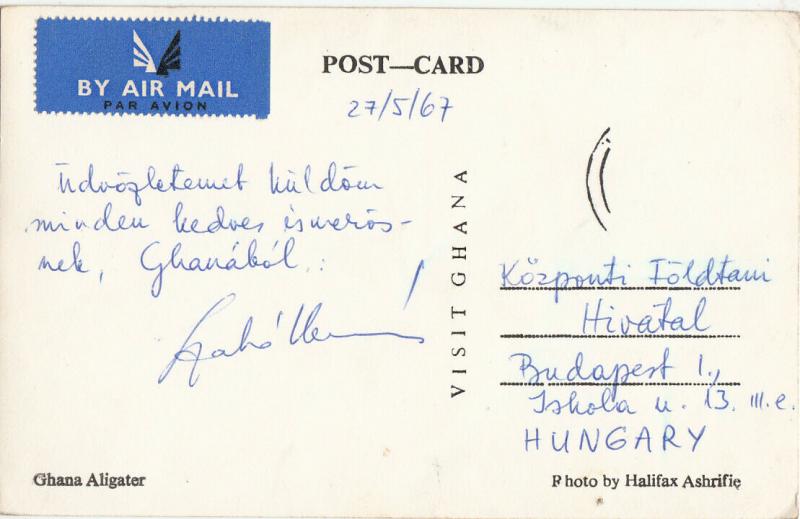 BY AIR MAIL
PAR AVION
POST—CARD
27/5/67
Üdvözletemet küldöm
minden kedves ismerős-
nek, Ghanából:
VISIT GHANA
Központi Földtani
Hivatal
Budapest I.,
Iskola u. 13. III.e.
HUNGARY
Ghana Aligater
Photo by Halifax Ashrifie